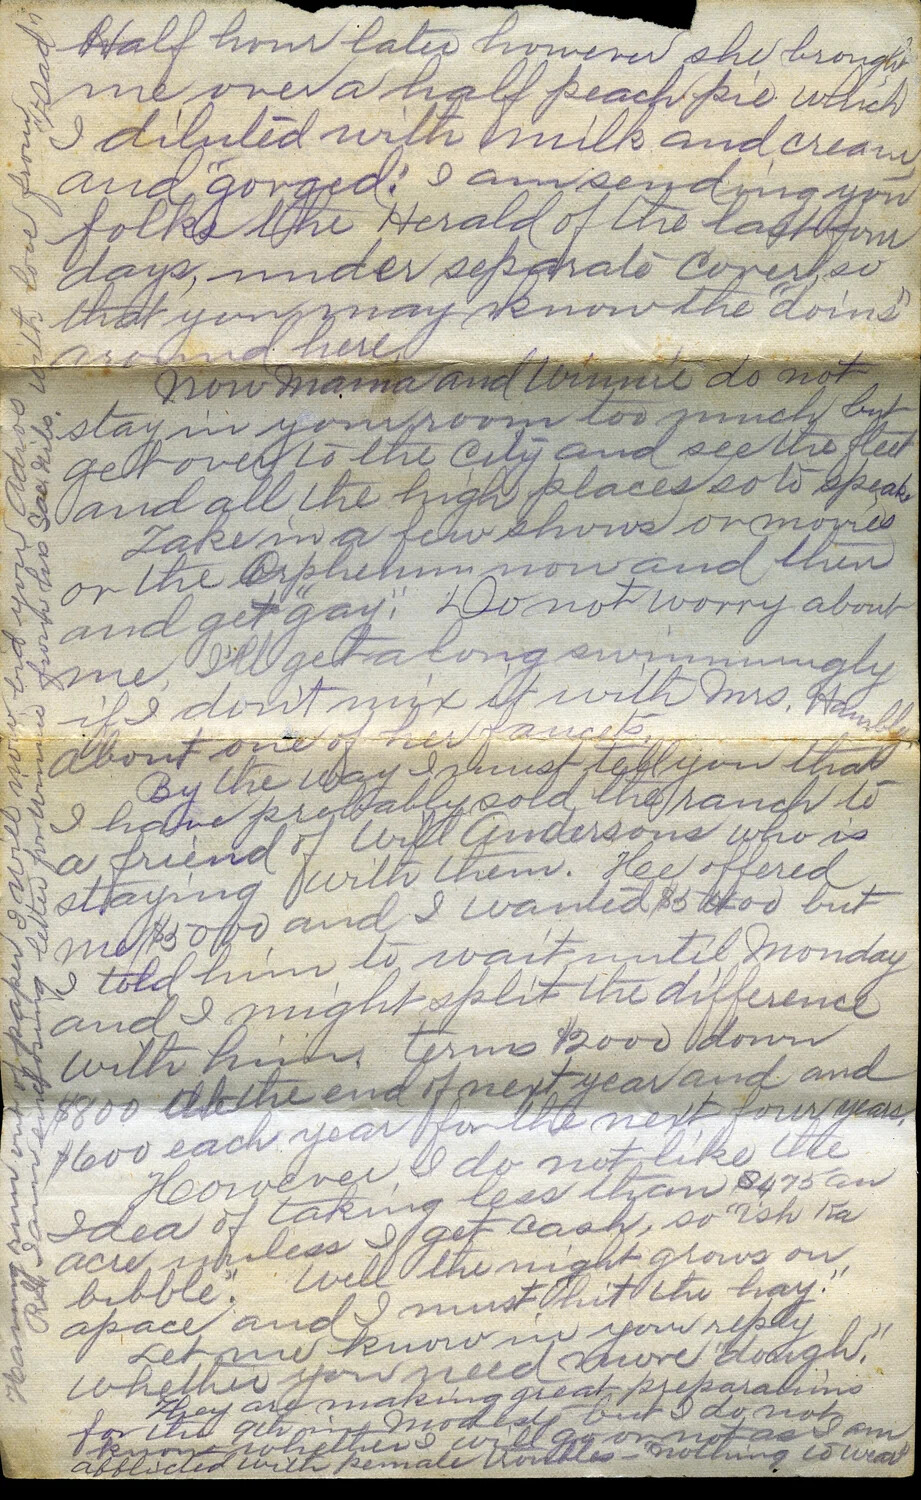 Half hour later however she brought
me over a half peach pie which
I diluted with milk and cream
and "gorged". I am sending you
folks the Herald of the last four
days, under separate cover, so
that you may know the "doins"
around here.
Now Mama and Winnie do not
stay in your room too much but
get over to the city and see the fleet
and all the high places so to speak.
Take in a few shows or movies
or the Orpheum now and then
and get "gay". Do not worry about
me, I'll get along swimmingly
if I don't mix it with Mrs.
about one of her faucets.
By the way I must tell you that
I have probably sold the ranch to
a friend of Will Andersons who is
staying with them. He offered
me $5000 and I wanted $5400 but
I told him to wait until Monday
and I might split the difference
with him. Terms $2000 down
$800 at the end of next year and and
$600 each year for the next four years.
However, I do not like the
Idea of taking less than $475 an
acre unless I get cash, so "ish ka
bibble". Well the night grows on
apace and I must "hit the hay."
Let me know in your reply
whether you need more "dough."
They are making great preparations
for the 4th in Modesto but I do not
know whether I will go or not as I am
afflicted with female troubles - "nothing to wear"
Having run out of paper I will now bid you Adios with love from "Dad"
P.S. I am enclosing letter for Winnie from his Nibs.